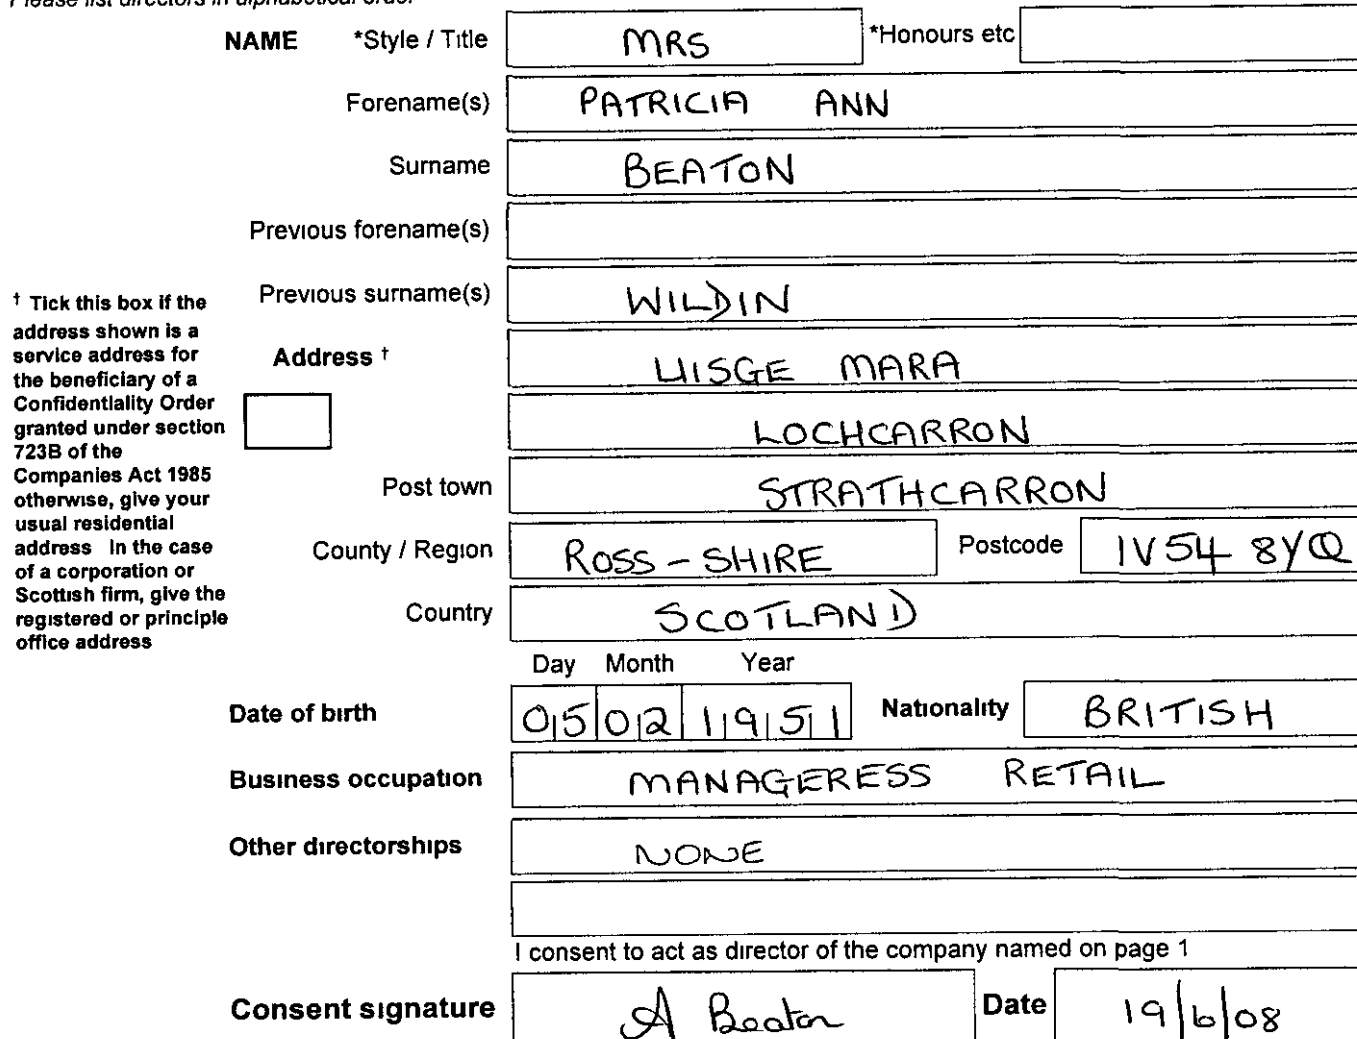 Please list directors in alphabetical order
NAME *Style / Title MRS *Honours etc
Forename(s) PATRICIA ANN
Surname BEATON
Previous forename(s)
Previous surname(s) WILDIN
Address † UISGE MARA
LOCHCARRON
Post town STRATHCARRON
County / Region ROSS-SHIRE Postcode IV54 8YQ
Country SCOTLAND
† Tick this box if the
address shown is a
service address for
the beneficiary of a
Confidentiality Order
granted under section
723B of the
Companies Act 1985
otherwise, give your
usual residential
address In the case
of a corporation or
Scottish firm, give the
registered or principle
office address
Day Month Year
Date of birth 05 02 1951 Nationality BRITISH
Business occupation MANAGERESS RETAIL
Other directorships NONE
I consent to act as director of the company named on page 1
Consent signature A Beaton Date 19/6/08